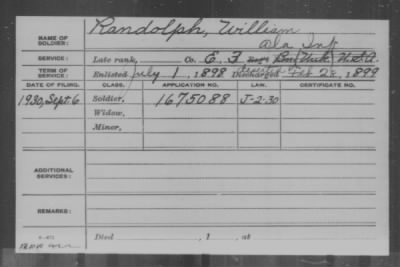 NAME OF SOLDIER: Randolph, William
Ala Inf
SERVICE: Late rank, Co. E. 3 U.S.A.
TERM OF SERVICE: Enlisted July 1, 1898 Discharged Feb 28, 1899
DATE OF FILING. CLASS. APPLICATION NO. LAW. CERTIFICATE NO.
1930, Sept. 6 Soldier, 1675088 J-2-30
Widow,
Minor,
ADDITIONAL SERVICES:
REMARKS:
Died , 1 , at